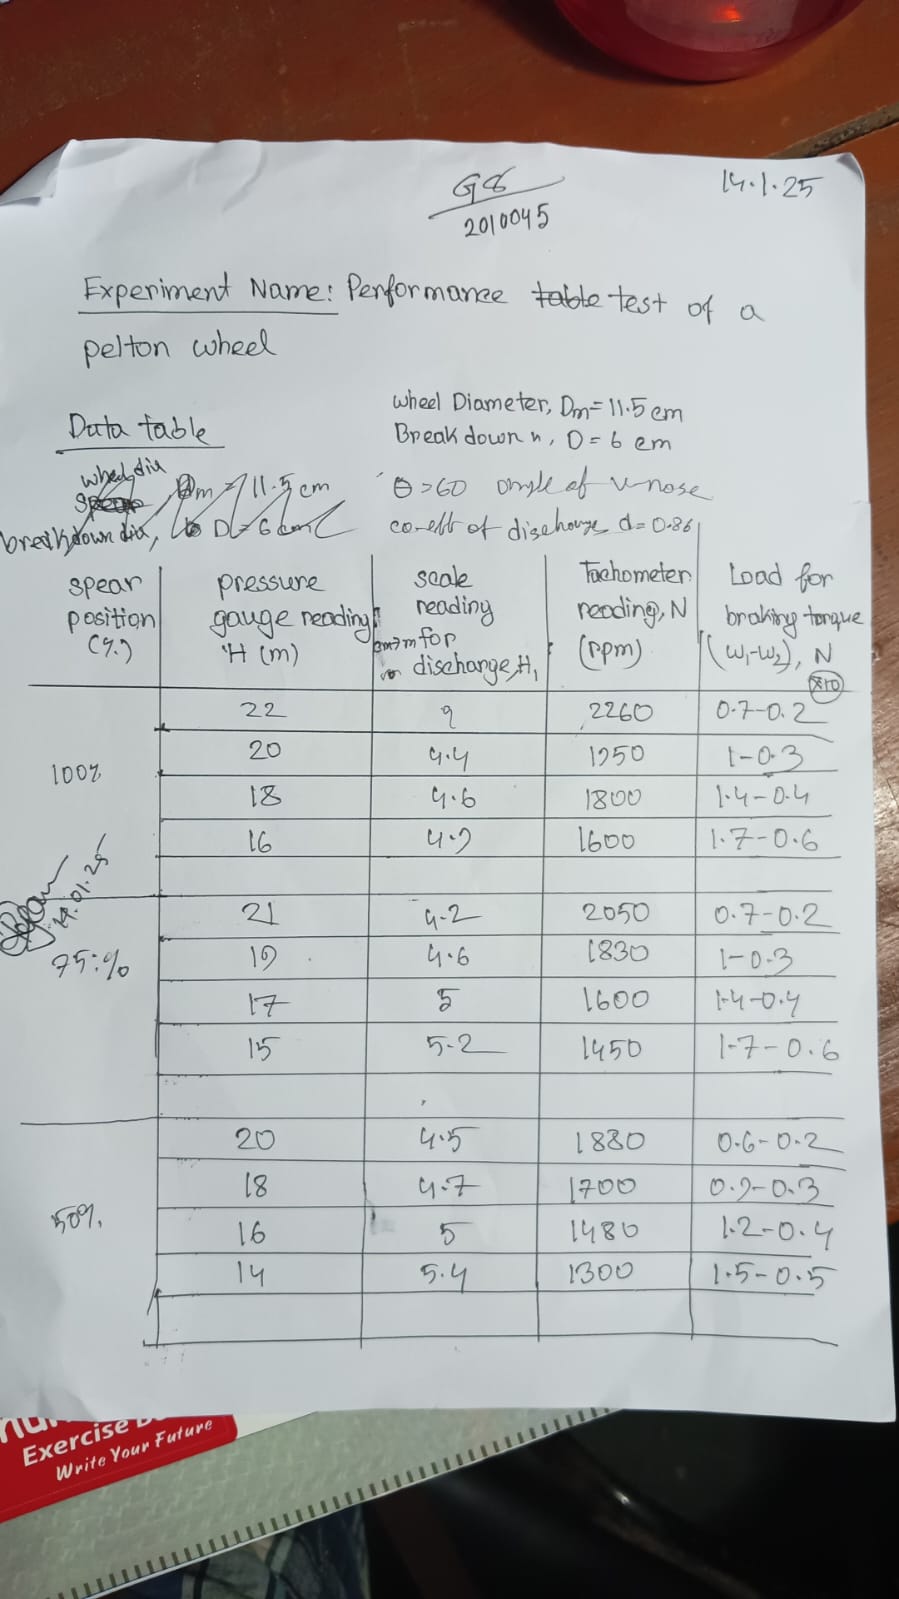 G8
2010045
14.1.25
Experiment Name: Performance table test of a
pelton wheel
wheel Diameter, Dm=11.5 cm
Break down n, D = 6 cm
Data table
wheel dia
Dm = 11.5 cm
θ=60 angle of v-nose
breakdown dia, D=6 cm
co-eff of discharge d=0.86
spear position (%) | pressure gauge reading H (m) | scale reading for discharge, H₁ | Tachometer reading, N (rpm) | Load for braking torque (W₁-W₂), N
×10
22 9 2260 0.7-0.2
100% 20 4.4 1950 1-0.3
18 4.6 1800 1.4-0.4
16 4.9 1600 1.7-0.6
14.01.25
21 4.2 2050 0.7-0.2
75% 19 4.6 1830 1-0.3
17 5 1600 1.4-0.4
15 5.2 1450 1.7-0.6
20 4.5 1880 0.6-0.2
18 4.7 1700 0.9-0.3
50% 16 5 1480 1.2-0.4
14 5.4 1300 1.5-0.5
Exercise
Write Your Future